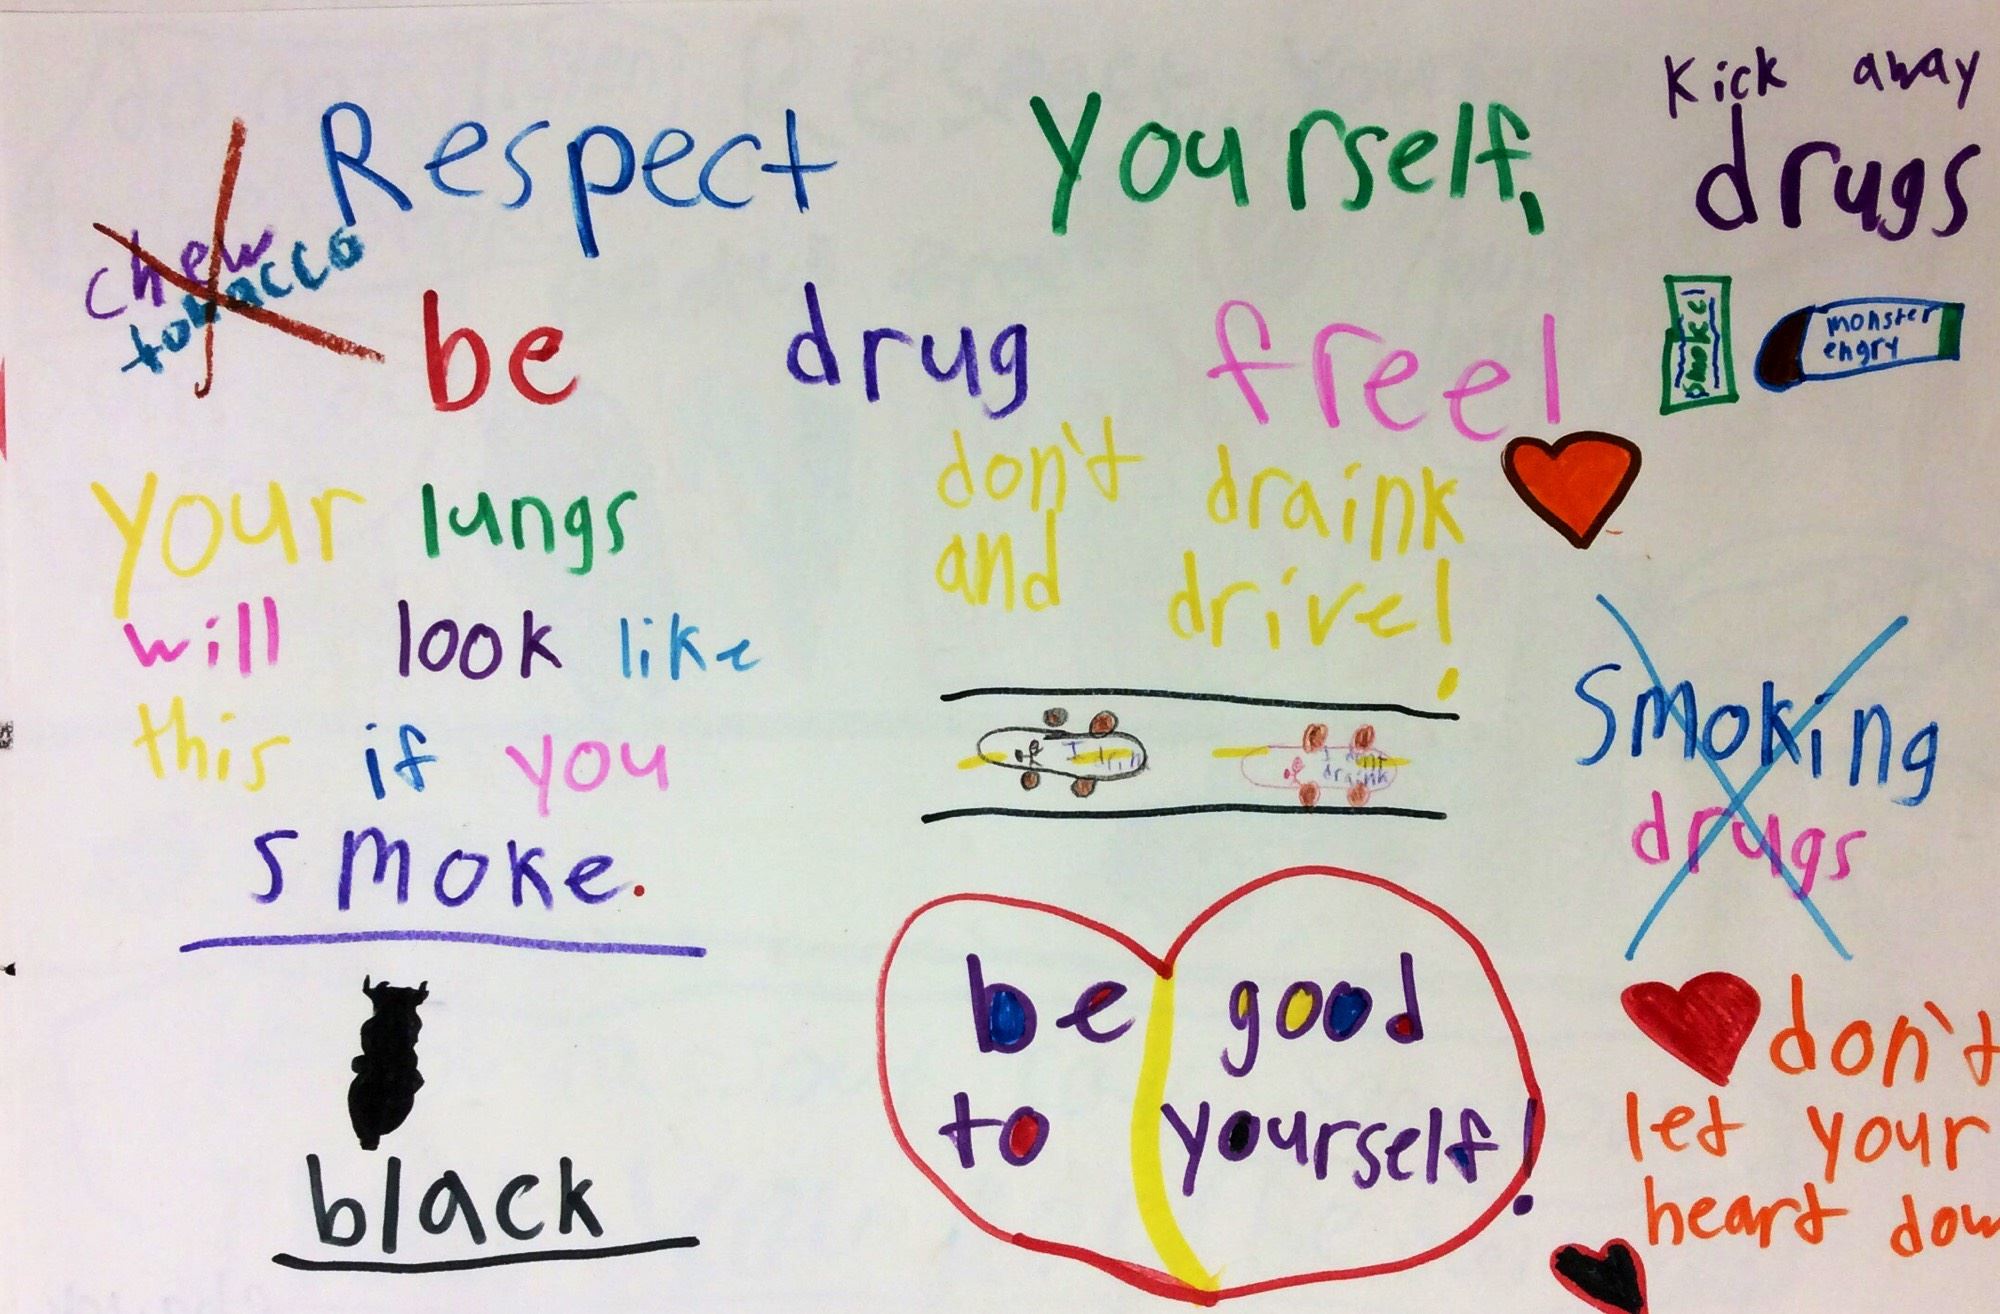 Respect Yourself,
be drug free!
chew
tobacco
Kick away
drugs
smoke!
monster
engry
your lungs
will look like
this if you
smoke.
black
don't draink
and drive!
I drin
I dont
draink
be good
to yourself!
Smoking
drugs
don't
let your
heart dow